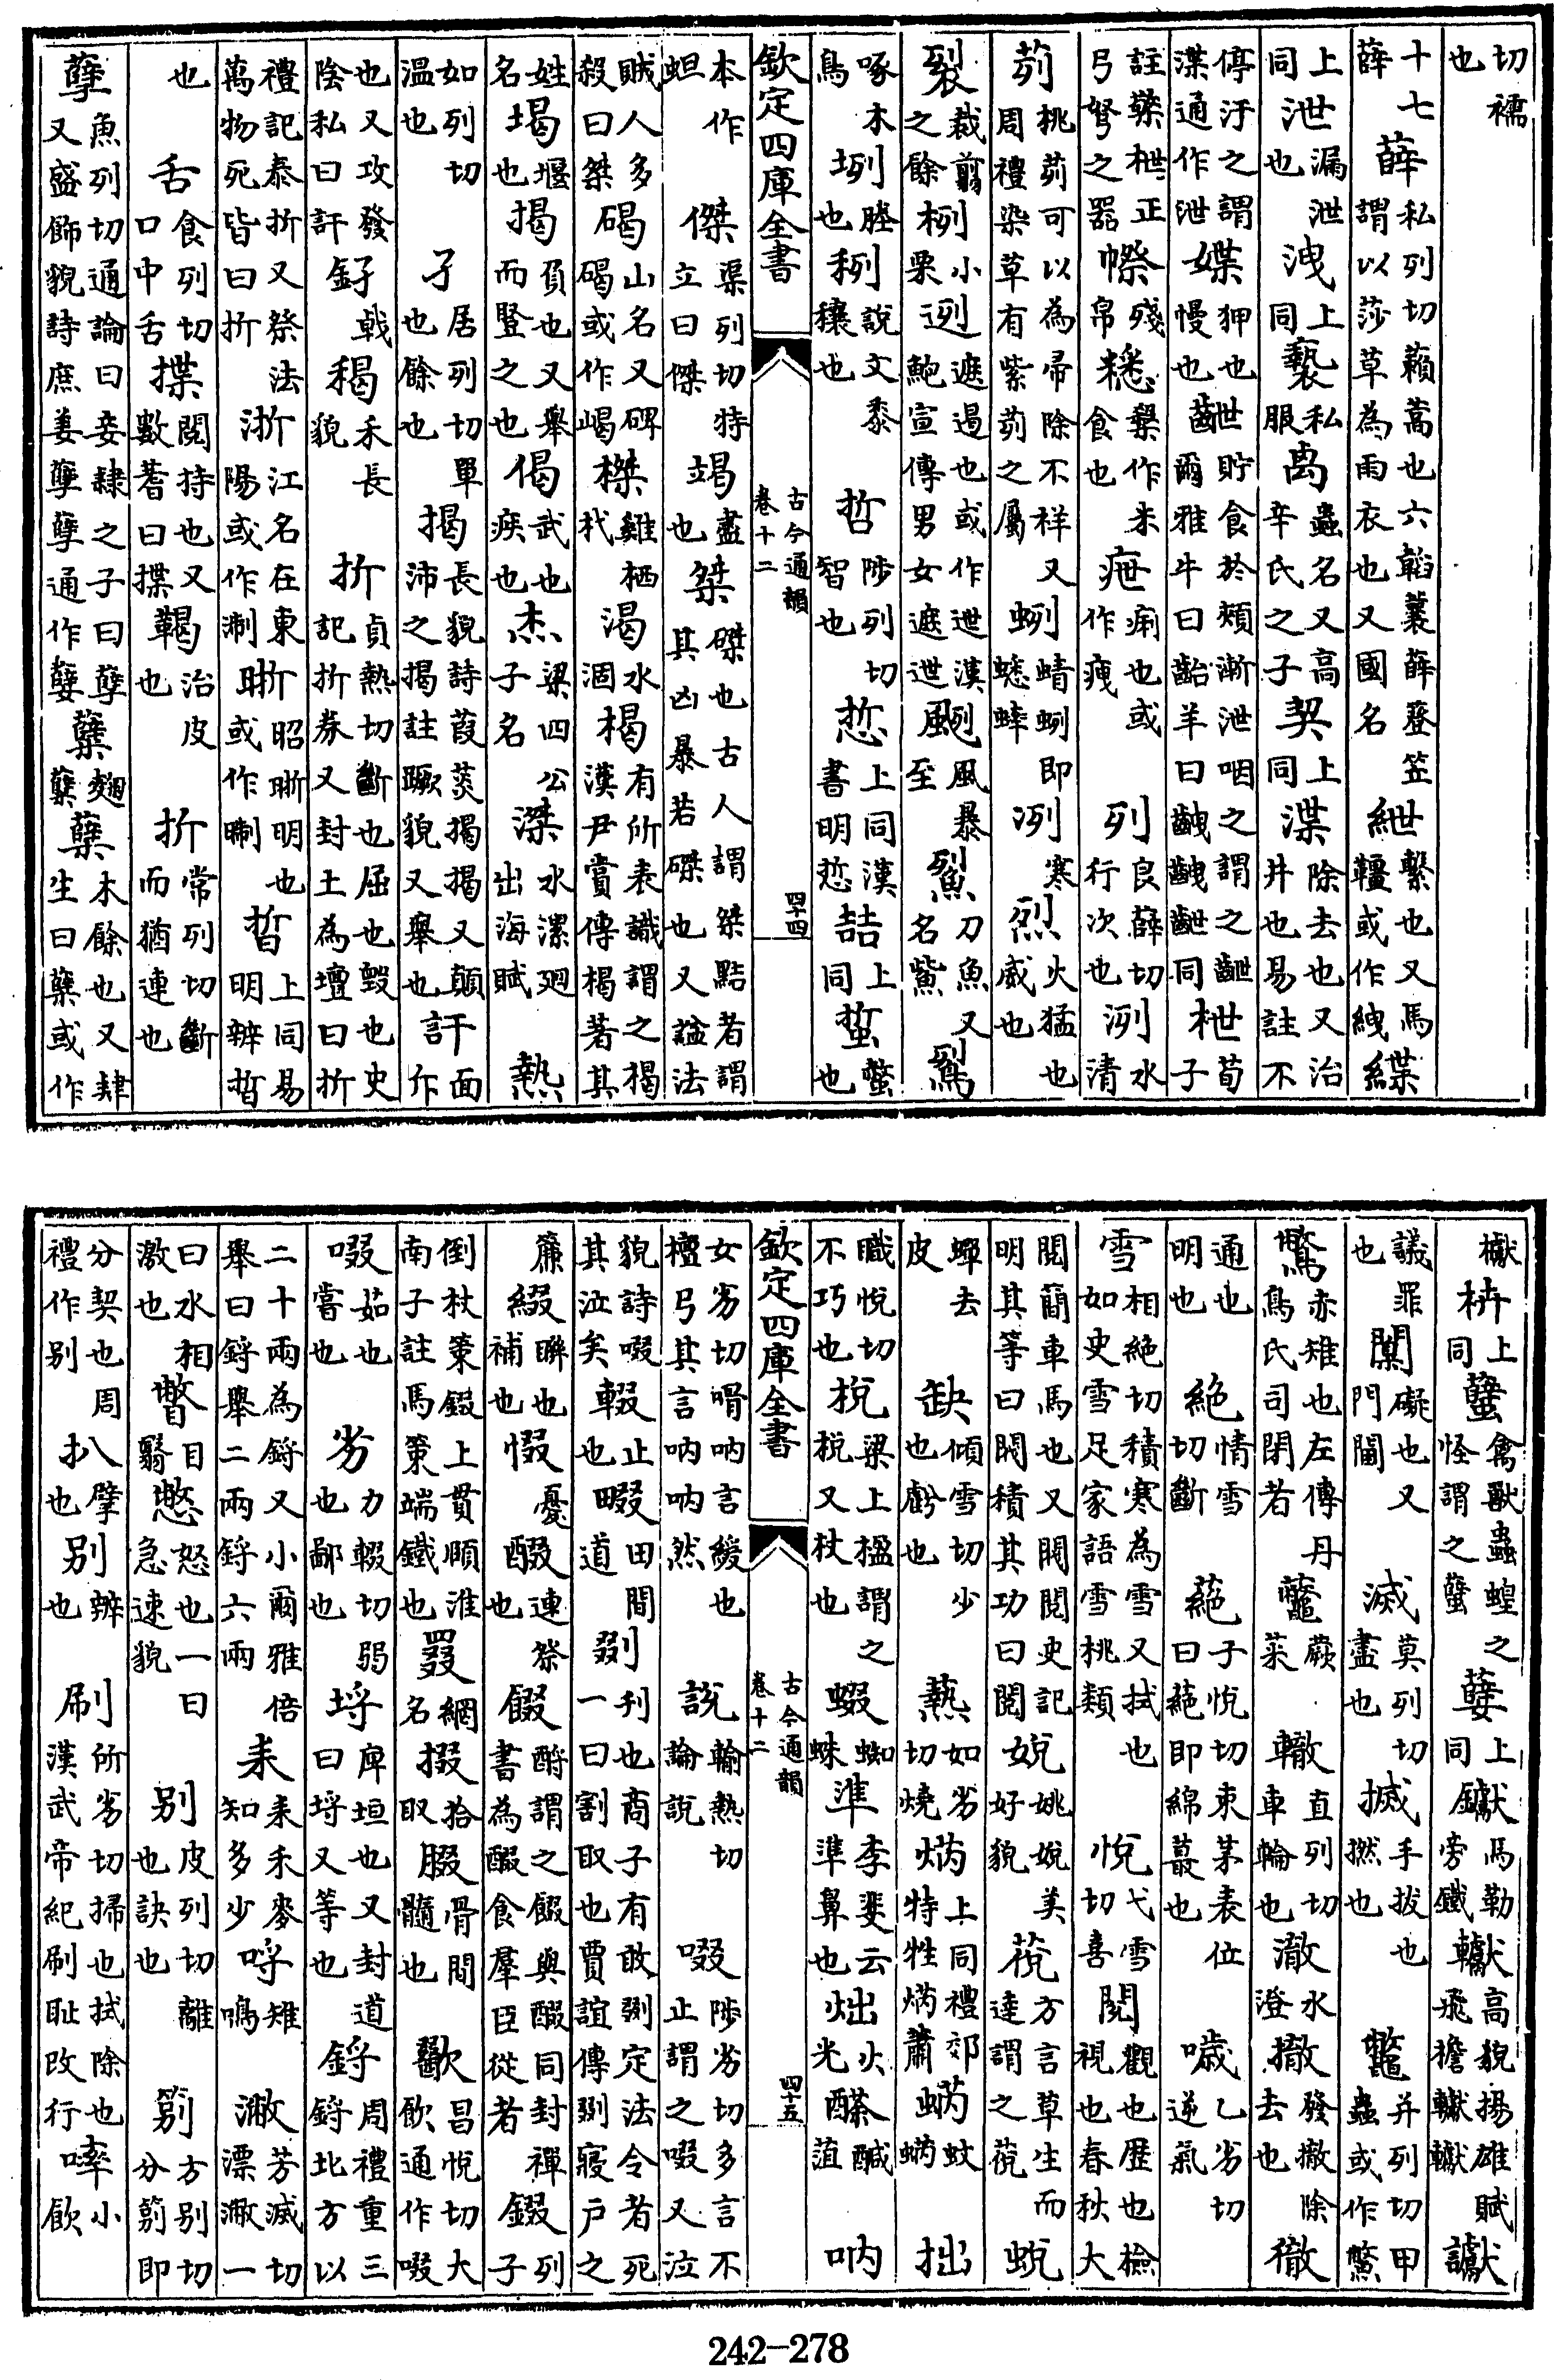 切襦也
十七薛薛私列切藾蒿也六韜蓑薛簦笠謂以莎草為雨衣也又國名紲繫也又馬韁或作絏緤
上同泄漏泄也洩上同褻私服禼蟲名又高辛氏之子契上同渫除去也又治井也易註不
停汙之謂渫通作泄媟狎也慢也齛貯食於頰漸泄咽之謂之齛爾雅牛曰齝羊曰齥齥齛同枻荀子
註檠枻正弓弩之器㡜殘帛作米食也疶痢也或作列良薛切行次也洌水清
茢桃茢可以為帚除不祥又周禮染草有紫茢之屬蛚蜻蛚即蟋蟀冽寒烈火猛也威也
裂裁剪之餘栵小栗迾遮過也或作迣漢鮑宣傳男女遮迣颲風暴至鮤刀魚又名鮆鴷
啄木鳥塍也䅀說文黍穰也哲陟列切智也悊上同漢書明悊喆上同蜇螫也
欽定四庫全書 古今通韻卷十二 四十四
本作䖧傑渠列切特立曰傑竭盡也桀磔也古人謂桀黠者謂其凶暴若磔也又諡法
賊人多殺曰桀碣山名又碑碣或作嵑榤雞栖杙渴水涸楬有所表識謂之楬漢尹賞傳楬著其
姓名堨堰也揭負也又舉而豎之也偈武也疾也杰梁四公子名滐水潔廻出海賦熱
如列切溫也孑居列切單也餘也揭長貌詩葭菼揭揭又顛沛之揭註蹶貌又舉也訐面作
也又攻發陰私曰訐釨戟䅥禾長貌折貞熱切斷也屈也毀也史記折券又封土為壇曰折
禮記泰折又祭法萬物死皆曰折浙江名在東陽或作淛晣昭晣明也或作晢上同易明辨晢
也舌食列切口中舌揲閱持也又數蓍曰揲鞨治皮也折常列切斷而猶連也
孽魚列切通論曰妾隸之子曰孽又盛飾貌詩庶姜孽孽通作㜸糵麴糵櫱木餘也又肄生曰櫱或作
枿上同蠥禽獸蟲蝗之怪謂之蠥㜸上同钀馬勒旁鐵䡾高貌揚雄賦飛檐䡾䡾讞
議罪也闑礙也又門閫滅莫列切盡也搣手拔也撚也鼈并列切甲蟲或作鱉
鷩赤雉也左傳丹鳥氏司閉者虌蕨菜轍直列切車輪也澈水澄撤發撤除去也徹
通也明也絕情雪切斷蕝子悅切束茅表位曰蕝即綿蕞也噦乙劣切逆氣
雪相絕切積寒為雪又拭也如史雪足家語雪桃類悅弋雪切喜閱觀也歷也檢視也春秋大
閱簡車馬也又閥閱史記明其等曰閥積其功曰閱娧姚娧美好貌莌方言草生而達謂之莌蛻
蟬去皮缺傾雪切少也虧也爇如劣切燒焫上同禮郊特牲焫蕭蜹蚊蜹拙
職悅切不巧也梲梁上楹謂之梲又杖也蝃蜘蛛準李斐云準鼻也炪火光醎菹吶
欽定四庫全書 古今通韻卷十二 四十五
女劣切㖞吶言緩也檀弓其言吶吶然說輸熱切論說啜陟劣切多言不止謂之啜又泣
貌詩啜其泣矣輟止也畷田間道剟刊也商子有敢剟定法令者死一曰割取也賈誼傳剟寢戶之
簾綴聯也補也惙憂醊連祭也餟酹謂之餟與醊同封禪書為醊食羣臣從者錣列子
倒杖策錣上貫頤淮南子註馬策端鐵也罬網名掇拾取腏骨間髓也歠昌悅切大飲通作啜
啜茹也嘗也劣力輟切弱也鄙也埒庳垣也又封道曰埒又等也鋝周禮重三鋝北方以
二十兩為鋝又小爾雅倍舉曰鋝舉二兩鋝六兩耒耒禾麥知多少哷雉鳴潎芳滅切漂潎一
曰水相激也瞥目翳憋怒也一曰急速貌別皮列切離也訣也䇷方別切分䇷即
分契也周禮作別扒八擘也別辨也刷所劣切掃也拭除也漢武帝紀刷恥改行啐小飲
242-278